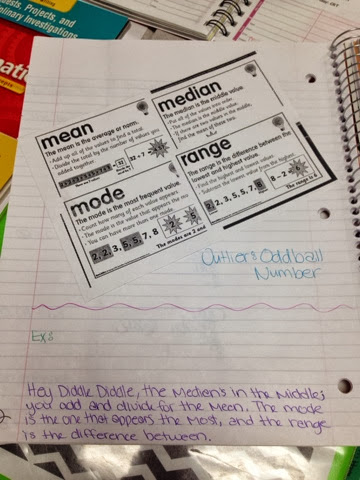 uests, Projects, and
plinary Investigations
mean
The mean is the average or norm.
- Add up all of the values to find a total.
- Divide the total by the number of values you
added together.
median
The median is the middle value.
- Put all of the values into order.
- The median is the middle value.
- If there are two values in the middle,
find the mean of these two.
mode
The mode is the most frequent value.
- Count how many of each value appears.
- The mode is the value that appears the
- You can have more than one mode.
2, 2, 3, 5, 5, 7, 8
2 5
The modes are 2 and
range
The range is the difference between the
lowest and highest value.
- Find the highest and lowest values.
- Subtract the lowest value from the highest.
2, 2, 3, 5, 5, 7, 8
8 - 2 =
The range is 6
Outlier: Oddball
Number
Exs
Hey Diddle Diddle, the Median's in the Middle;
you add and divide for the Mean. The mode
is the one that appears the Most, and the range
is the difference between.